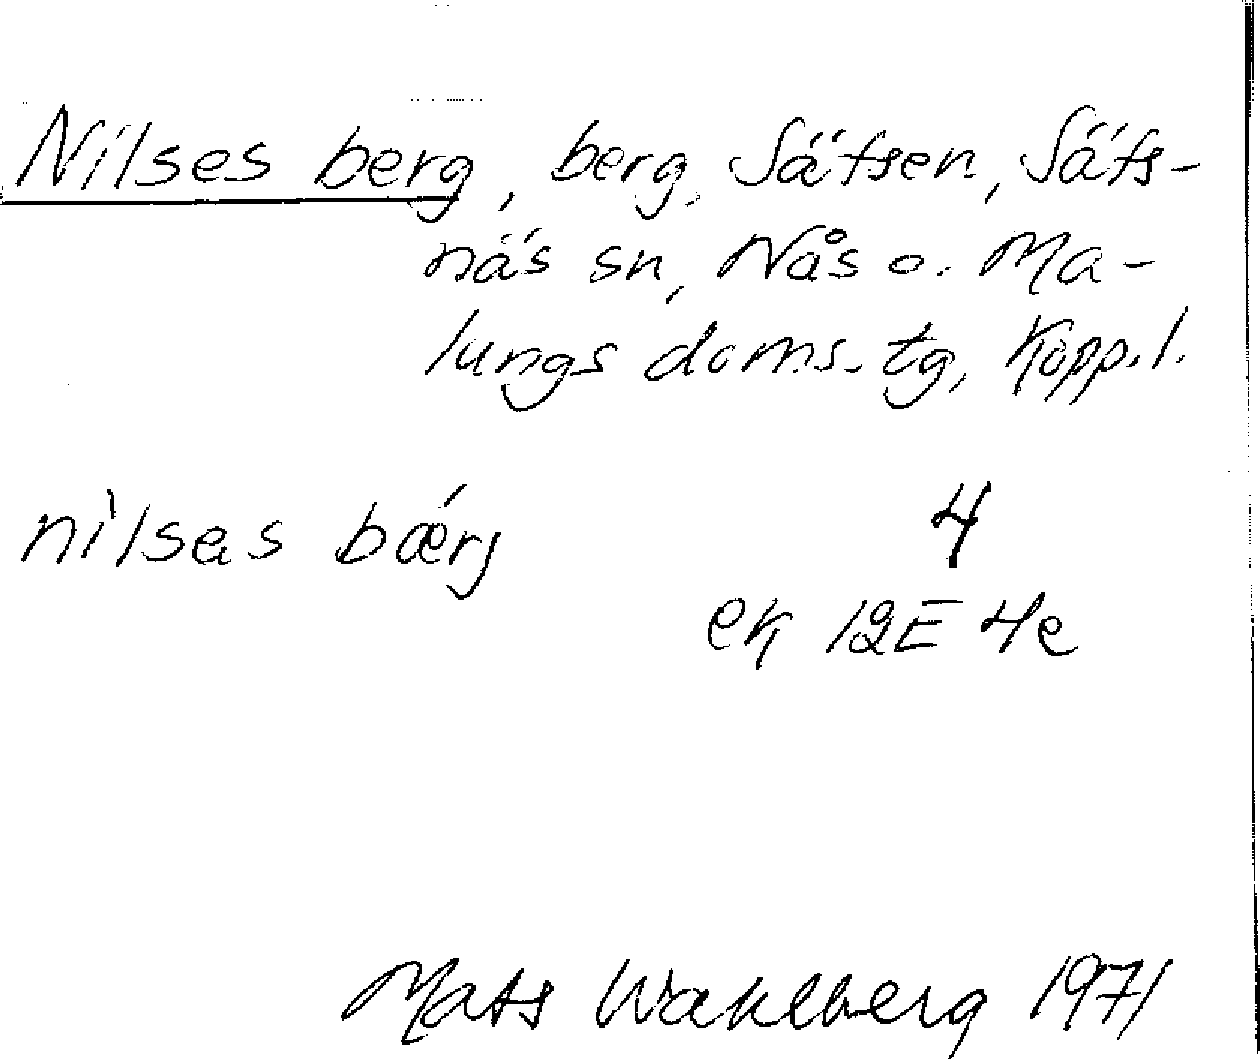 Nilses berg, berg, Sätsen, Säfs-
näs sn, Nås o. Ma-
lungs doms. tg, Kopp. l.
nìlsas bǽrj
4
ek 12E 4e
Mats Wahlberg 1971